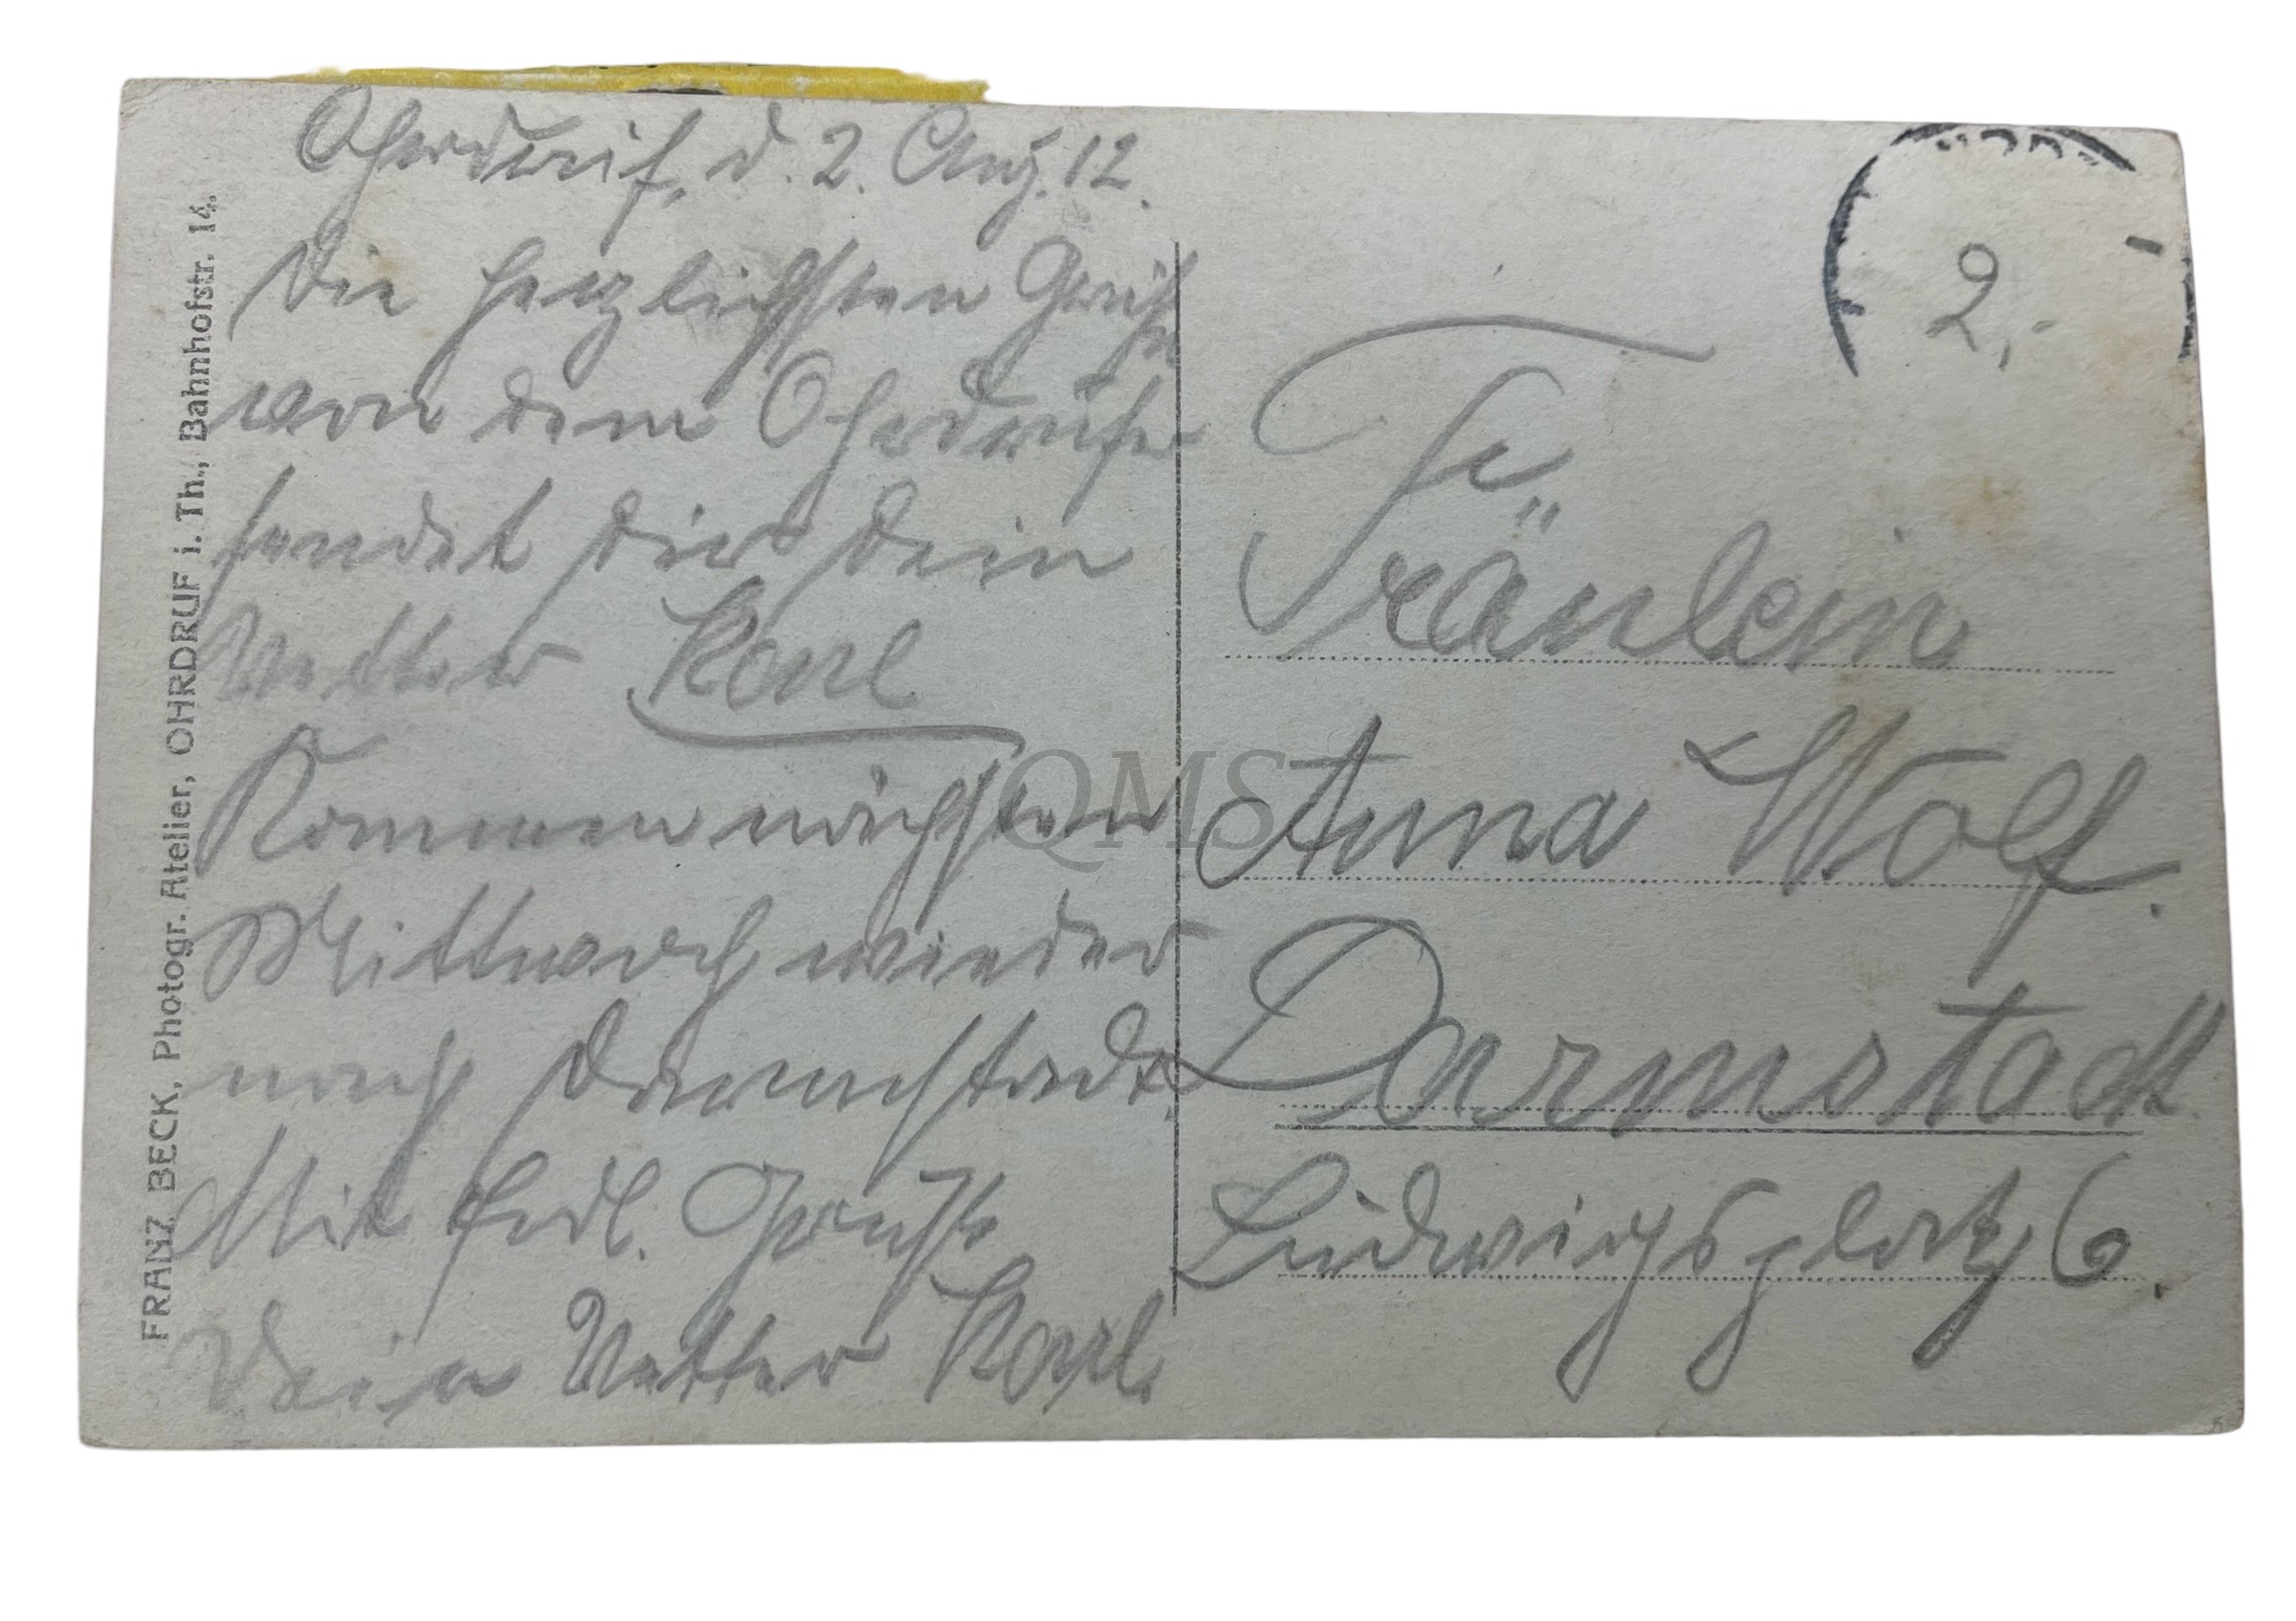 Ohrdruf, d. 2. Aug. 12.
Die herzlichsten Grüße
von dem Ohrdrufer
sendet Dir Dein
Vetter Karl
Kommen nächsten
Mittwoch wieder
nach Darmstadt.
Mit frdl. Gruße
Dein Vetter Karl.
Fr
Fräulein
Anna Wolf.
Darmstadt
Ludwigsplatz 6.
2,-
FRANZ BECK, Photogr. Atelier, OHRDRUF i. Th., Bahnhofstr. 14.
QMS